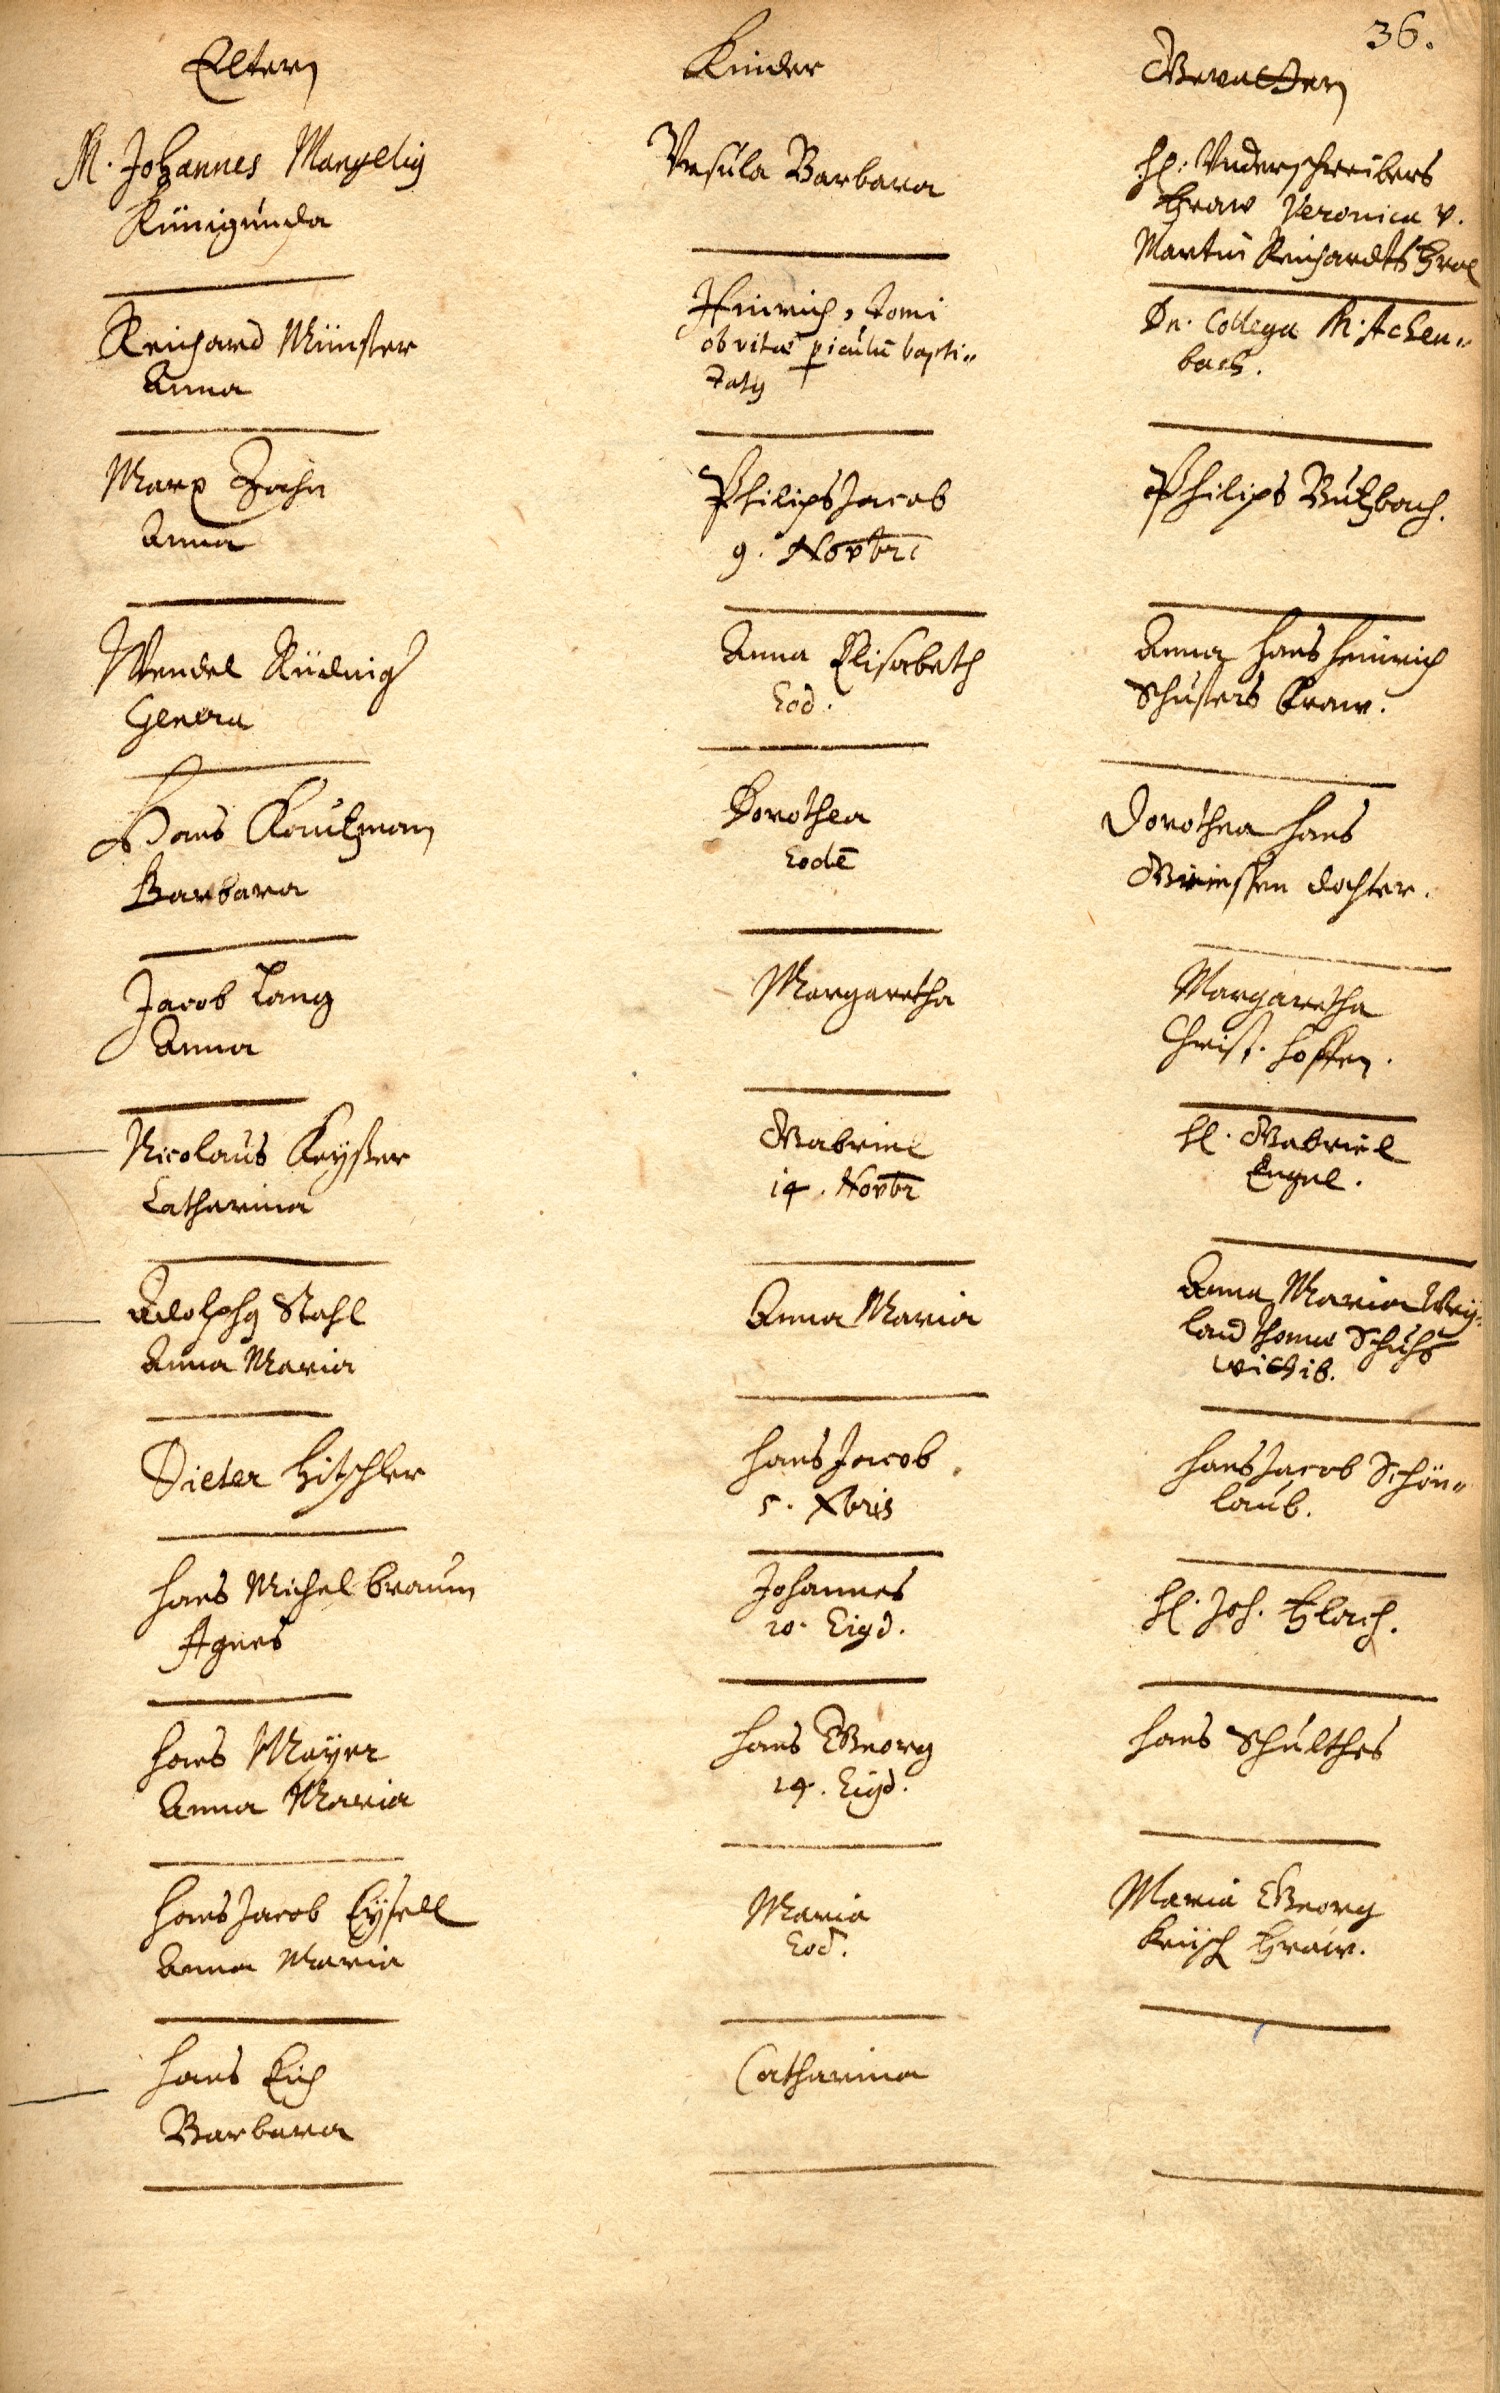 36.
Eltern
Kinder
Gevattern
M. Johannes Mangelig
Künigunda
Ursula Barbara
H: Underschreibers
fraw Veronica v.
Martin Reichardts fraw
Reichard Münster
Anna
Heinrich, domi
ob vitae piculū bapti„
zatg
Dn. Collega M. Achen„
bach.
Marx
Anna
Philips Jacob
9. Novbri
Philips Butzbach.
Wendel
Anna Elisabeth
Eod.
Anna Hans Heinrich
Schusters fraw.
Hans Kautzman
Barbara
Dorothea
Eodē
Dorothea Hans
dochter.
Jacob Lang
Anna
Margaretha
Margaretha
Christ.
Nicolaus Keyßer
Catharina
Gabriel
14. Novbr
H. Gabriel
Engel.
Adolphg Stahl
Anna Maria
Anna Maria
Anna Maria Wey„
land Thomae Schuhs
Dieter Hitschler
Hans Jacob
5. Xbris
Hans Jacob Schön„
laub.
Hans Michel Braum
Agnes
Johannes
20. Eigd.
H. Joh. Flach.
Hans Mayer
Anna Maria
Hans Georg
24. Eigd.
Hans Schulthes
Hans Jacob Eysell
Anna Maria
Maria
Eod.
Maria Georg
fraw.
Hans Eich
Barbara
Catharina